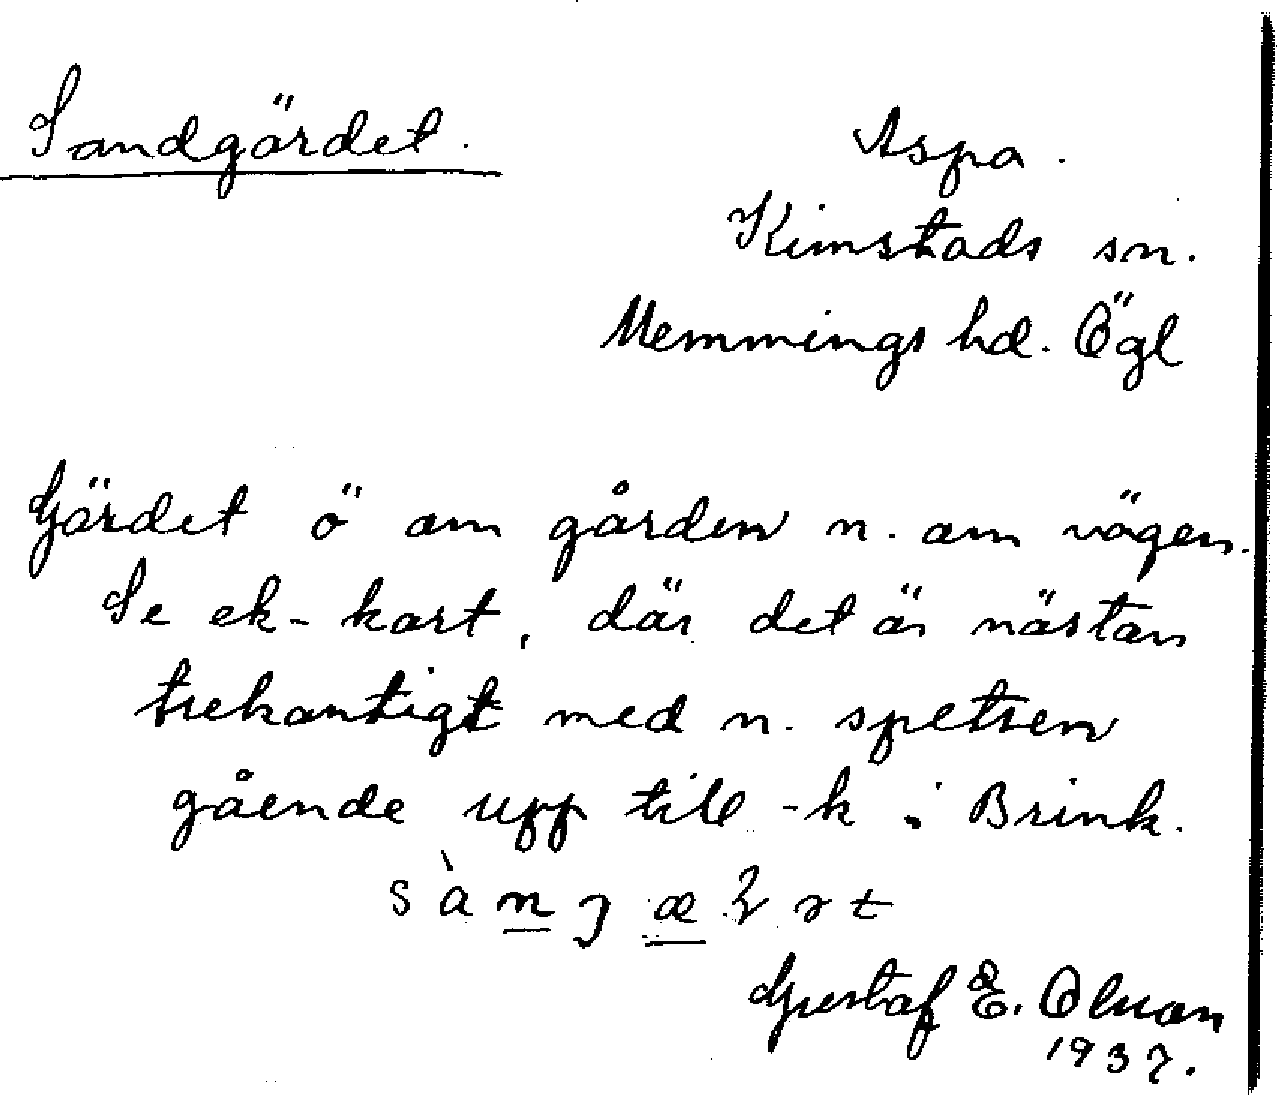 Sandgärdet.
Aspa.
Kimstads sn.
Memmings hd. Ögl
Gärdet ö om gården n. om vägen.
Se ek-kart, där det är nästan
trekantigt med n. spetsen
gående upp till -k i Brink.
Gustaf E. Olsson
1937.